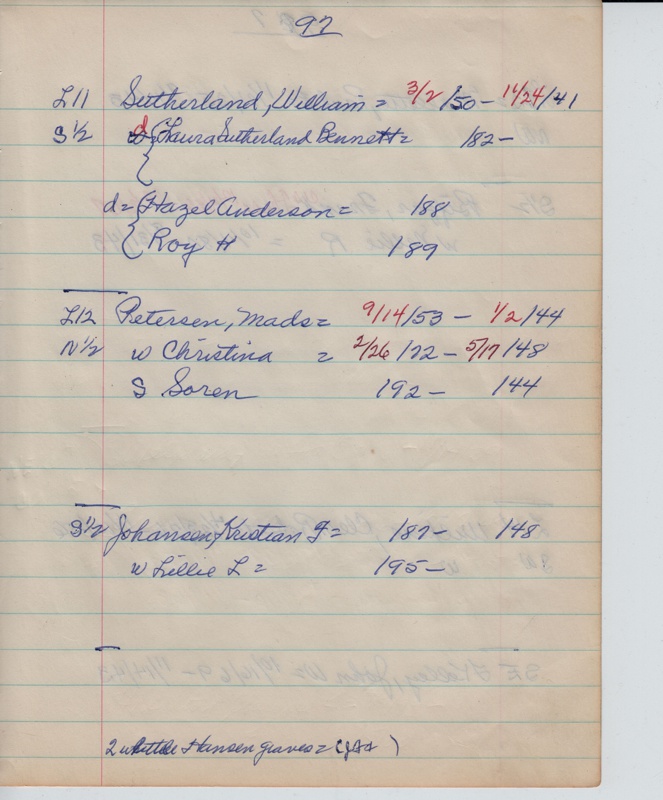 97
L11 Sutherland, William = 3/2/50 - 11/24/41
S 1/2 d { Laura Sutherland Bennett = 182 -
d = { Hazel Anderson = 188
Roy H 189
L12 Petersen, Mads = 9/14/53 - 1/2/44
N 1/2 w Christina = 2/26/72 - 5/17/48
S Soren 192 - 144
S 1/2 Johansen, Kristian F = 187 - 148
w Lillie L = 195 -
2 Hansen graves = ( )